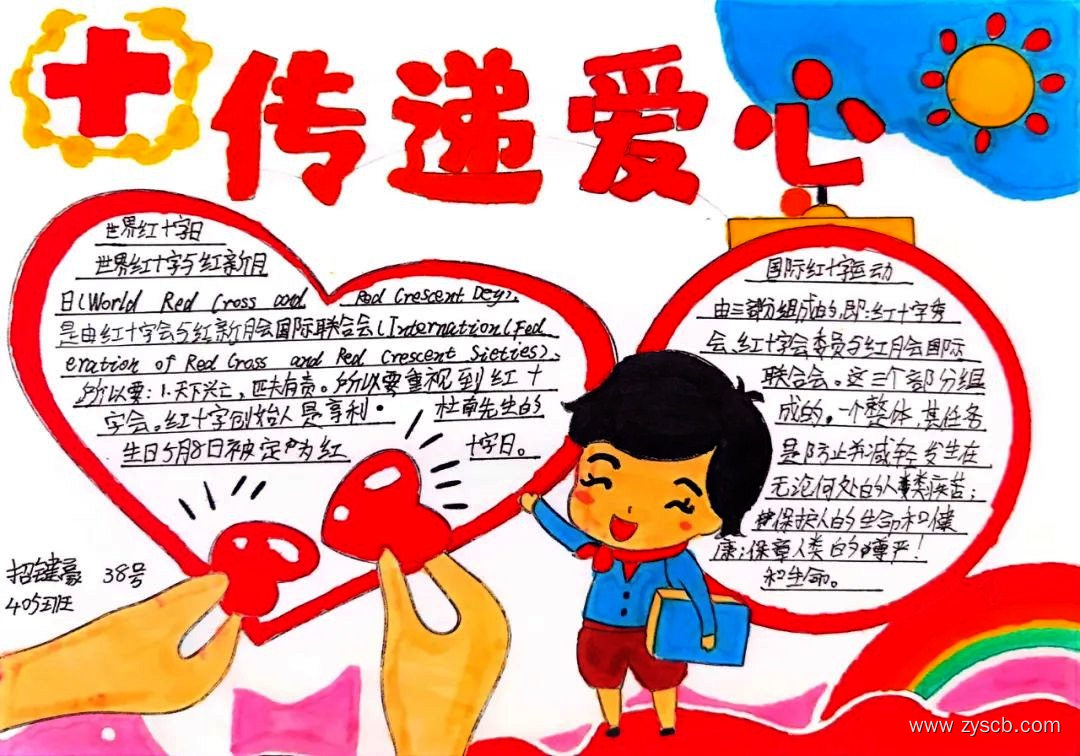 传递爱心
世界红十字日
世界红十字与红新月
日(World Red Cross and Red Crescent Dey),
是由红十字会与红新月会国际联合会(Internation(Fed
eration of Red Cross and Red Crescent Sieties),
所以要:1.天下兴亡,匹夫有责。所以要重视到红十
字会。红十字创始人是亨利·杜南先生的
生日5月8日被定为红十字日。
国际红十字运动
由三部分组成的,即:红十字委
会、红十字会委员与红月会国际
联合会。这三个部分组
成的。一个整体,其任务
是防止并减轻发生在
无论何处的人类疾苦;
保护人的生命和健
康;保障人类的尊严!
和生命。
招键豪 38号
405班
www.zyscb.com